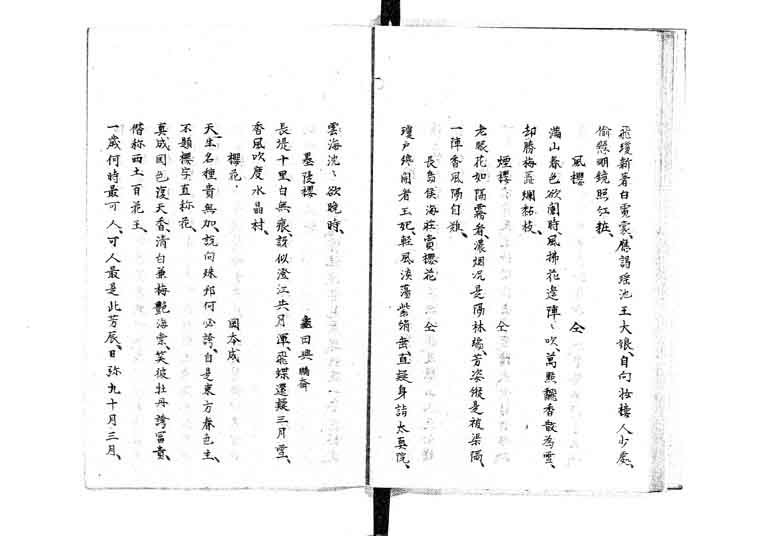 飛瓊新著白霓裳、應謁瑶池王大娘、自向妝樓人少處、
偷懸明鏡照紅粧、
風櫻 仝
滿山春色欲闌時、風拂花邊陣〻吹、萬點飜香散為雪、
却勝梅蕊爛粘枝、
煙櫻 仝
老眼花如隔霧看、濃烟况是隔林端、芳姿縱是被渠隔、
一陣香風隔自難、
長島侯海莊賞櫻花 仝
瓊戶終開者王妃、輕風淡蕩紫綃垂、直疑身詣太真院、
雲海沈〻欲晚時、
墨陵櫻 龜田興 鵬齋
長堤十里白無痕、訝似澄江共月渾、飛蝶還疑三月雪、
香風吹度水晶村、
櫻花、 岡本成
天生名種貴無加、說向殊邦何必誇、自是東方春色主、
不題櫻字直称花、
真成國色復天香、清白兼梅艷海棠、笑彼牡丹誇富貴、
僭称西土百花王、
一歲何時最可人、可人最是此芳辰、日弥九十月三月、